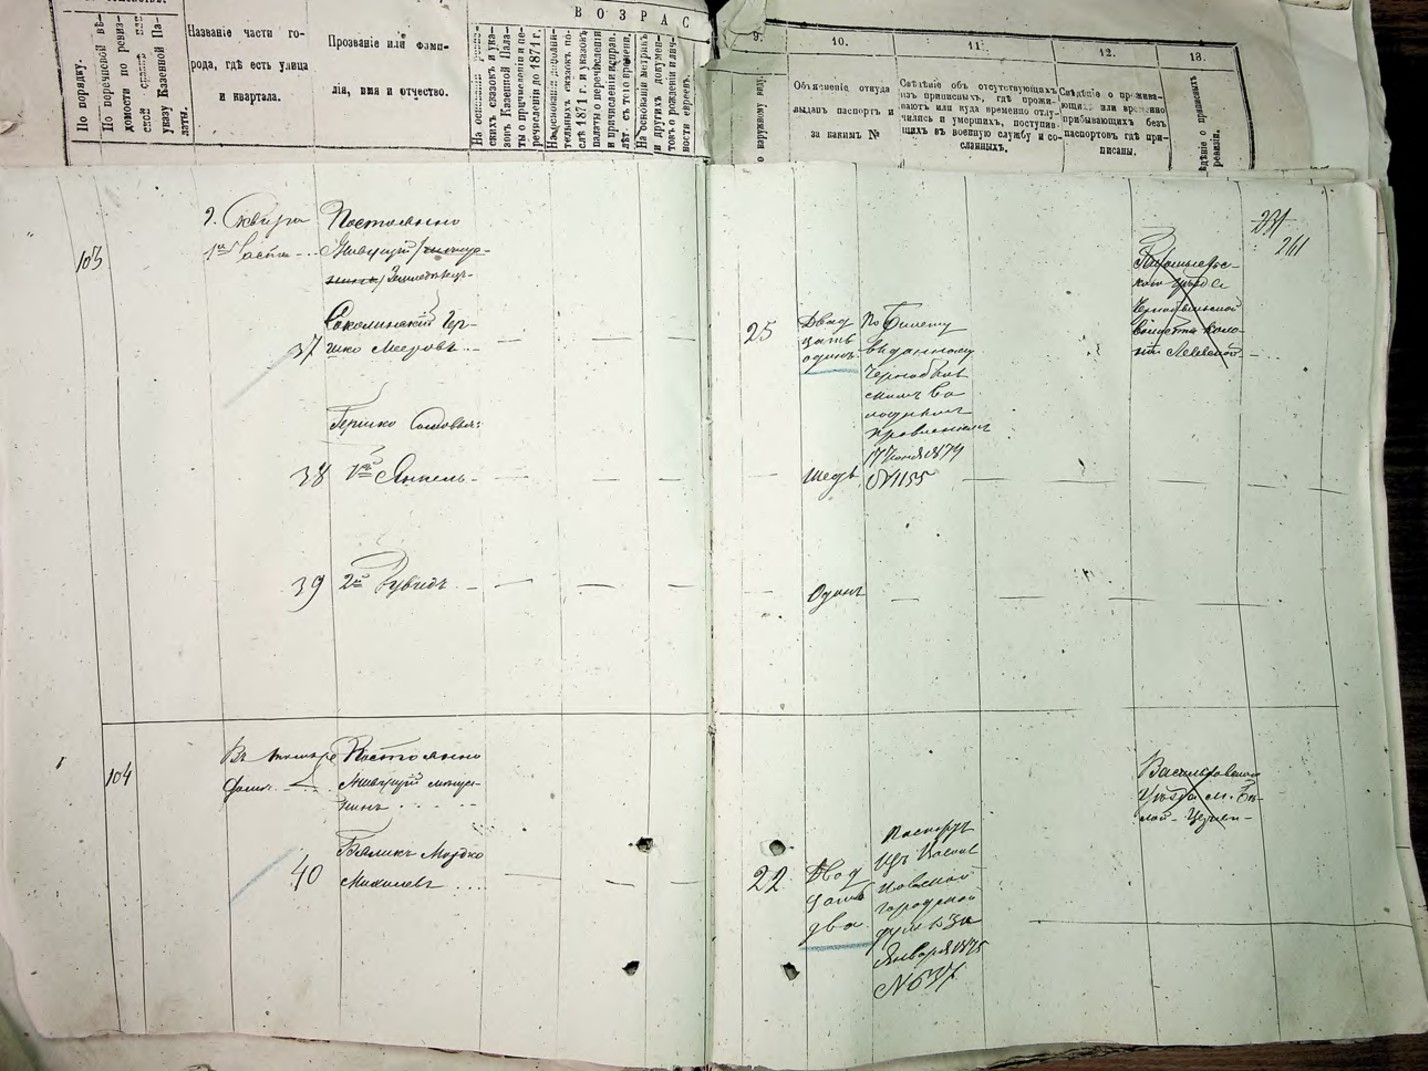 По порядку.
По перечневой вѣ-
домости по ревиз-
указу Казенной Па-
латы.
Названіе части го-
рода, гдѣ есть улица
и квартала.
Прозваніе или фами-
лія, имя и отчество.
ВОЗРАС
На основаніи
скихъ сказокъ и ука-
зовъ Казенной Пала-
ты о причисленіи и пе-
речисленіи до 1871 г.
На основаніи дополни-
тельныхъ сказокъ по-
слѣ 1871 г. и указовъ
палаты о перечисленіи
и причисленіи
лѣт. съ того времени.
На основаніи метрикъ
и другихъ докумен-
товъ о рожденіи и лич-
ности евреевъ.
9.
о наружному виду.
10.
Объясненіе откуда
выданъ паспортъ и
за какимъ №
11.
Свѣдѣніе объ отсутствующихъ
изъ приписныхъ, гдѣ прожи-
ваютъ или куда временно отлу-
чились и умершихъ, поступив-
щихъ въ военную службу и со-
сланныхъ.
12.
Свѣдѣніе о прожива-
ющихъ или временно
прибывающихъ безъ
паспортовъ гдѣ при-
писаны.
13.
ѣдѣніе о приписныхъ
ревизіи.
231
261
103
г. Сквира
1я Части
Постоянно
Живущій
Земледѣлец
Соколинскій Гер-
37 шко Мееровъ
25
Двад
цать
одинъ
По билету
выданному
Чернобыль
скимъ Во
лостнымъ
Правленіемъ
17 Іюня 1874
№ 1155
Чернобыльской
волости Коло-
ніи
Гершко Сыновья:
38 1й Янкель
Шесть
39 2й Рувинъ
Одинъ
104
Въ
Постоянно
Живущій мѣщан-
нинъ
Бяликъ Мордко
40 Михелевъ
22
Двад
цать
два
Паспортъ
изъ Василь
ковской
городской
думы за
Января 1875
№ 637
Васильковскаго
Уѣзда м. Бѣ-
лой-Церкви